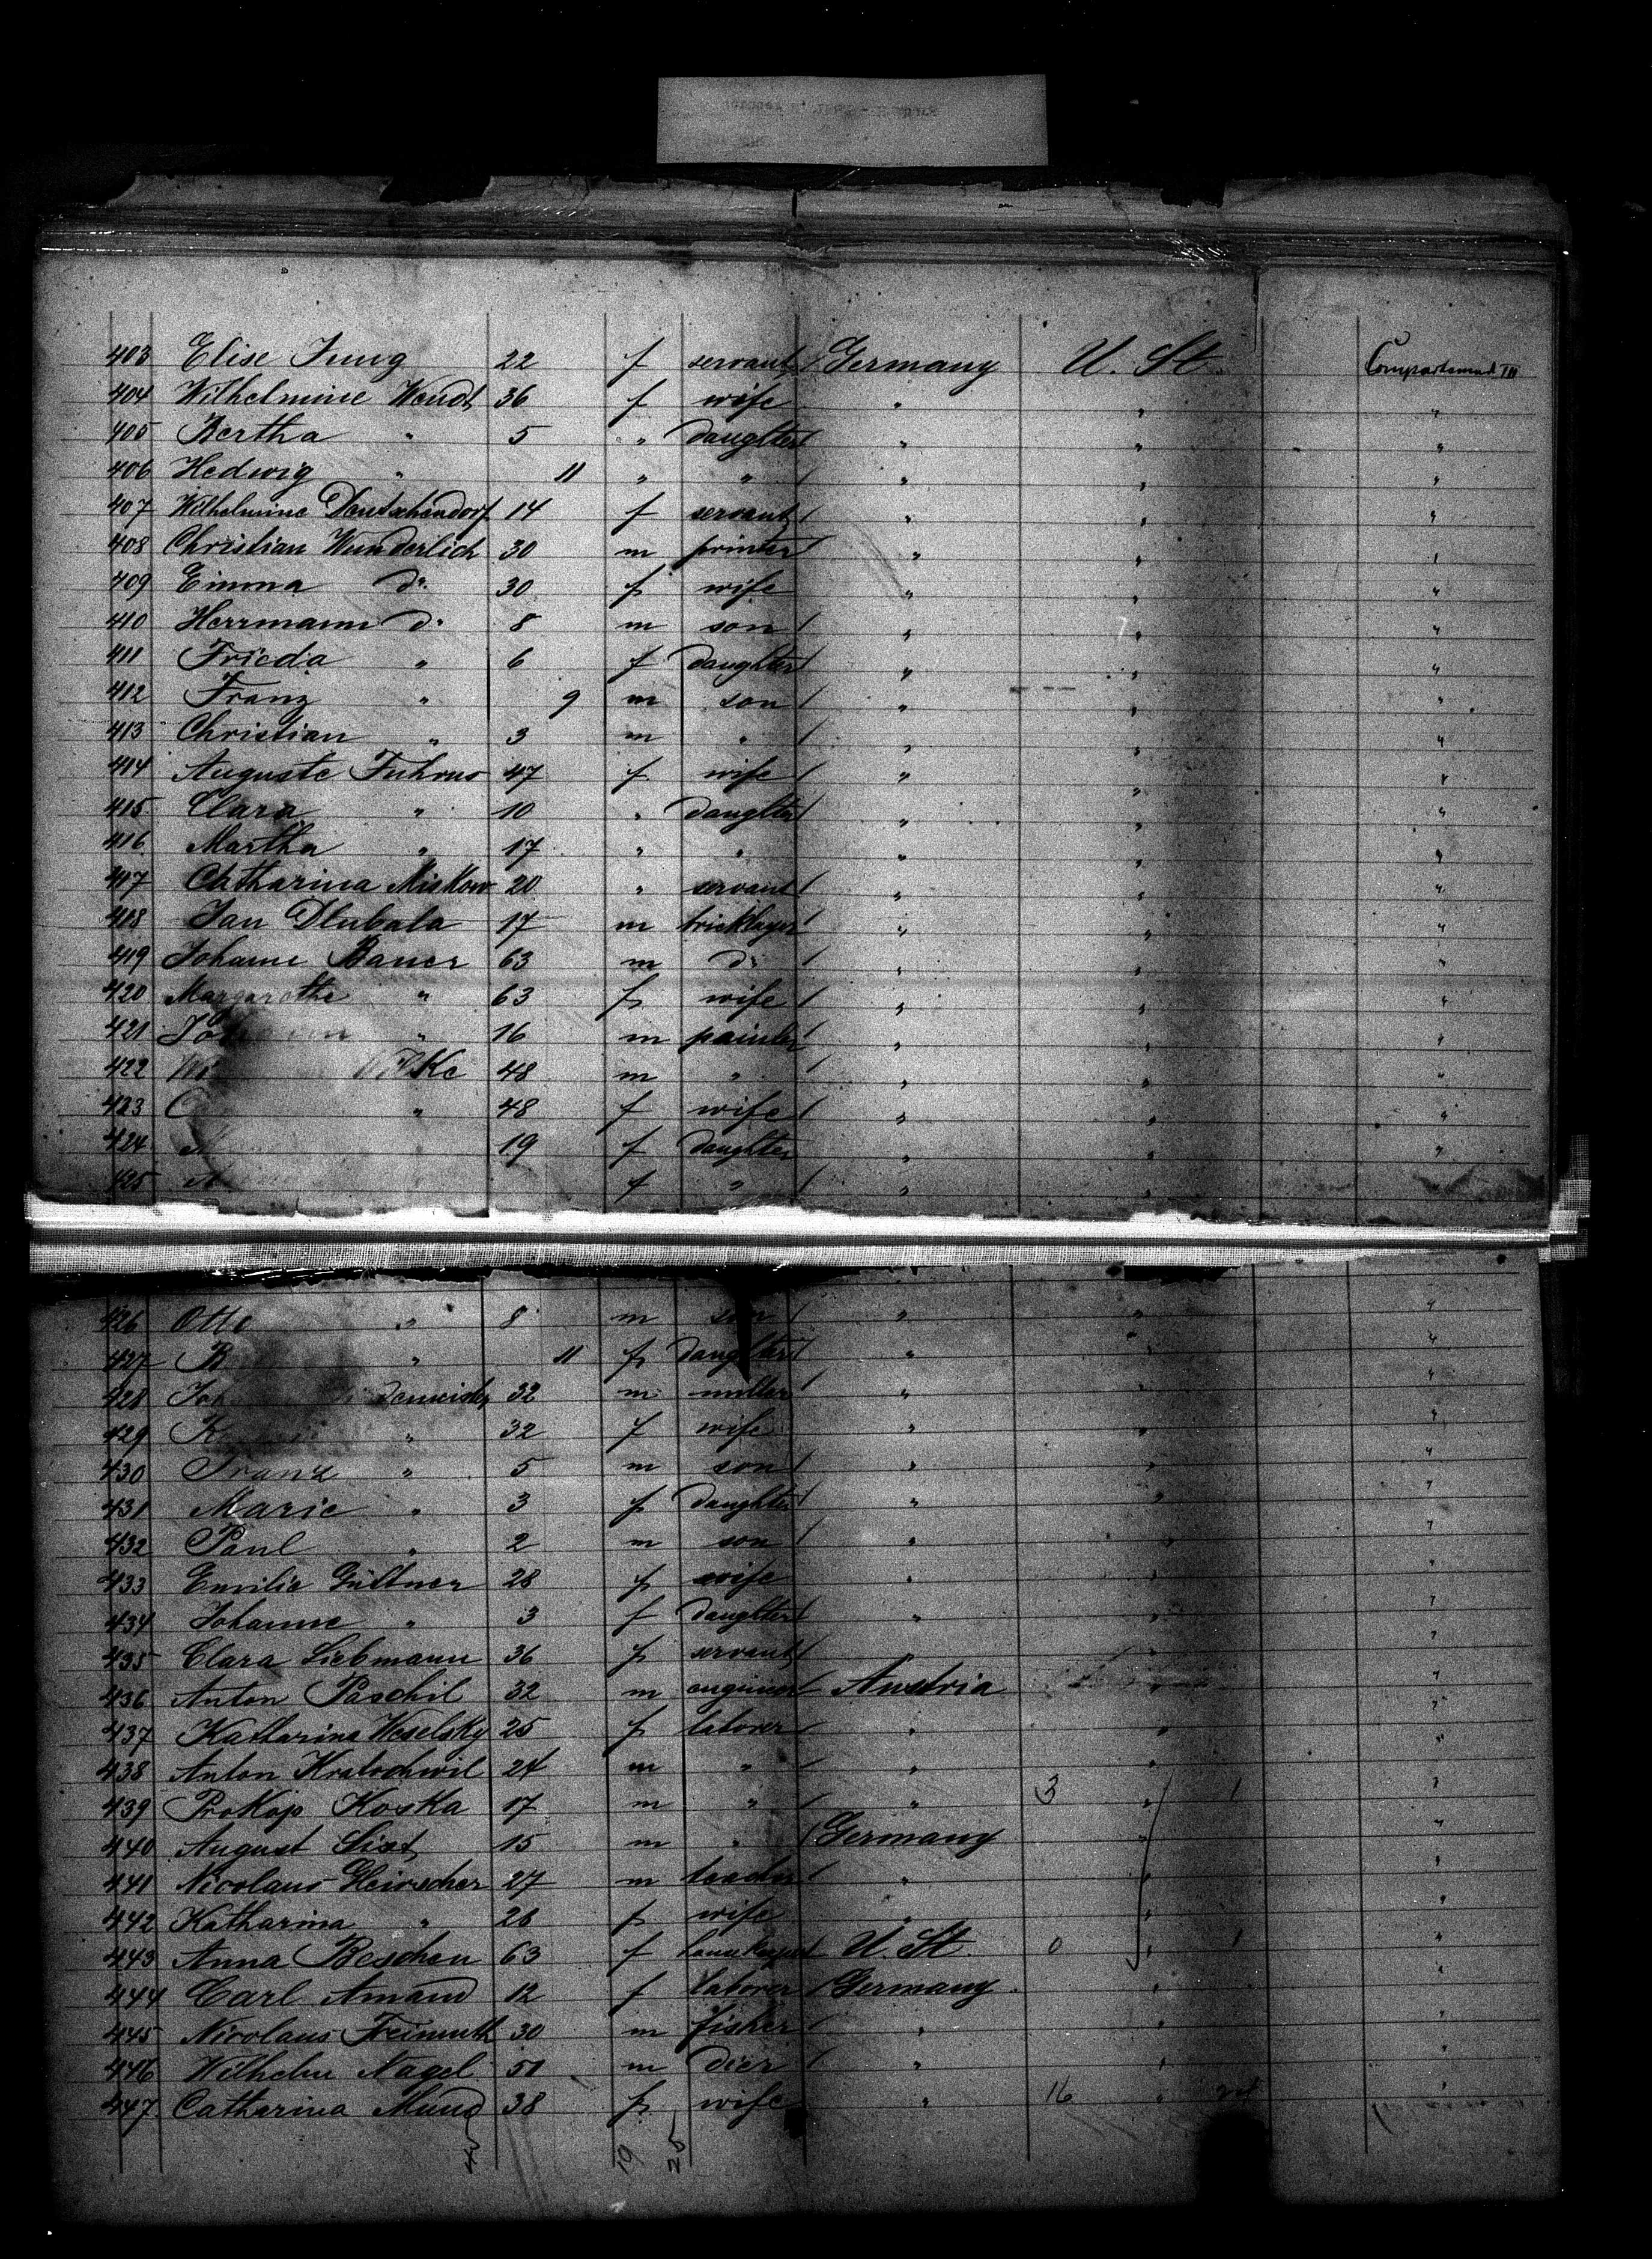 403 Elise Jung 22 f servant Germany U. St. Compartement III
404 Wilhelmine Wendt 36 f wife " " "
405 Bertha " 5 " daughter " " "
406 Hedwig " 11 " " " " "
407 Wilhelmine Deutschendorf 14 f servant " " "
408 Christian Wunderlich 30 m printer " " "
409 Emma do. 30 f wife " " "
410 Herrmann do. 8 m son " " "
411 Frieda " 6 f daughter " " "
412 Franz " 9 m son " " "
413 Christian " 3 m " " " "
414 Auguste 47 f wife " " "
415 Clara " 10 " daughter " " "
416 Martha " 17 " " " " "
417 Catharina Miskow 20 " servant " " "
418 Jan Dlubala 17 m bricklayer " " "
419 Johann Bauer 63 m do. " " "
420 Margarethe " 63 f wife " " "
421 " 16 m painter " " "
422 48 m " " " "
423 " 48 f wife " " "
424 19 f daughter " " "
425 f " " "
426 Otto " 8 m son " " "
427 " 11 f daughter " " "
428 32 m miller " " "
429 " 32 f wife " " "
430 Franz " 5 m son " " "
431 Marie " 3 f daughter " " "
432 Paul " 2 m son " " "
433 Emilie Güttner 28 f wife " " "
434 Johanne " 3 f daughter " " "
435 Clara Liebmann 36 f servant " " "
436 Anton Paschil 32 m engineer Austria " "
437 Katharina Weselsky 25 f laborer " " "
438 Anton Kratochwil 24 m " " " "
439 Prokop Koska 17 m " " 3 " 1 "
440 August List 15 m " Germany " "
441 Nicolaus 27 m " " "
442 Katharina " 26 f wife " " "
443 Anna Beschen 63 f U. St. 0 " 1 "
444 Carl Amand 12 f laborer Germany " "
445 Nicolaus Freimuth 30 m fisher " " "
446 Wilhelm Nagel 51 m dier " " "
447 Catharina Mund 38 f wife " 16 "
19